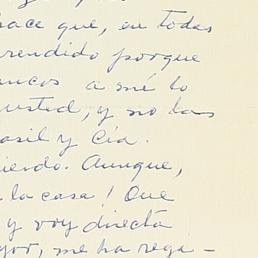 hace que, en todas
rendido porque
ancos a mé lo
usted, y no las
asil y Cía.
iendo. Aunque,
la casa! Que
y voy directa
yor, me ha rega-